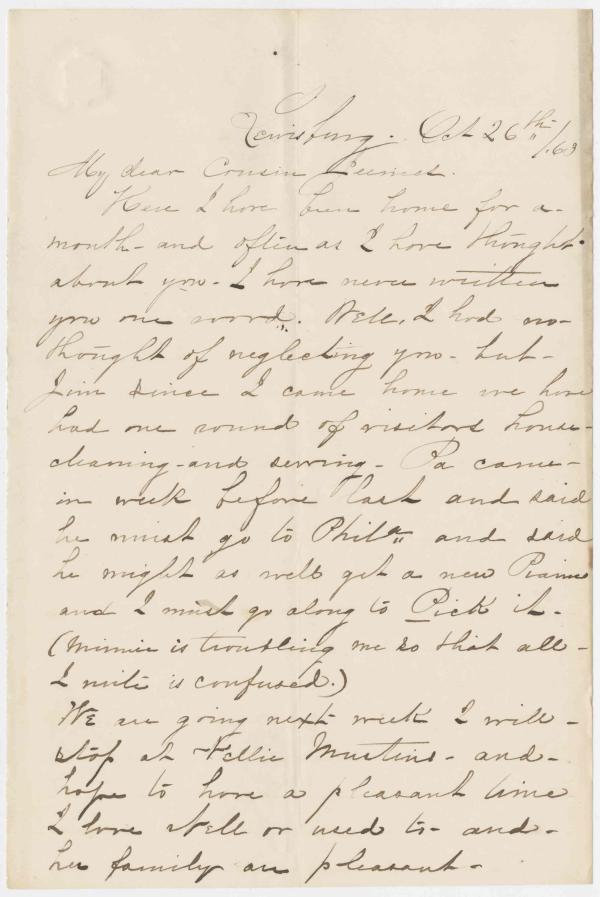 Lewisburg. Oct 26th /63
My dear Cousin
Here I have been home for a-
month- and often as I have thought
about you- I have never written
you one word. Well, I had no-
thought of neglecting you- but-
Jim since I came home we have
had one round of visitors house-
cleaning- and sewing- Pa came-
in week before last and said
he must go to Phila and said
he might as well get a new Piano
and I must go along to Pick it-
(Minnie is troubling me so that all-
I write is confused.)
We are going next week I will-
stop at Nellie Mustins- and-
hope to have a pleasant time
I love Nell or used to- and-
her family are pleasant-